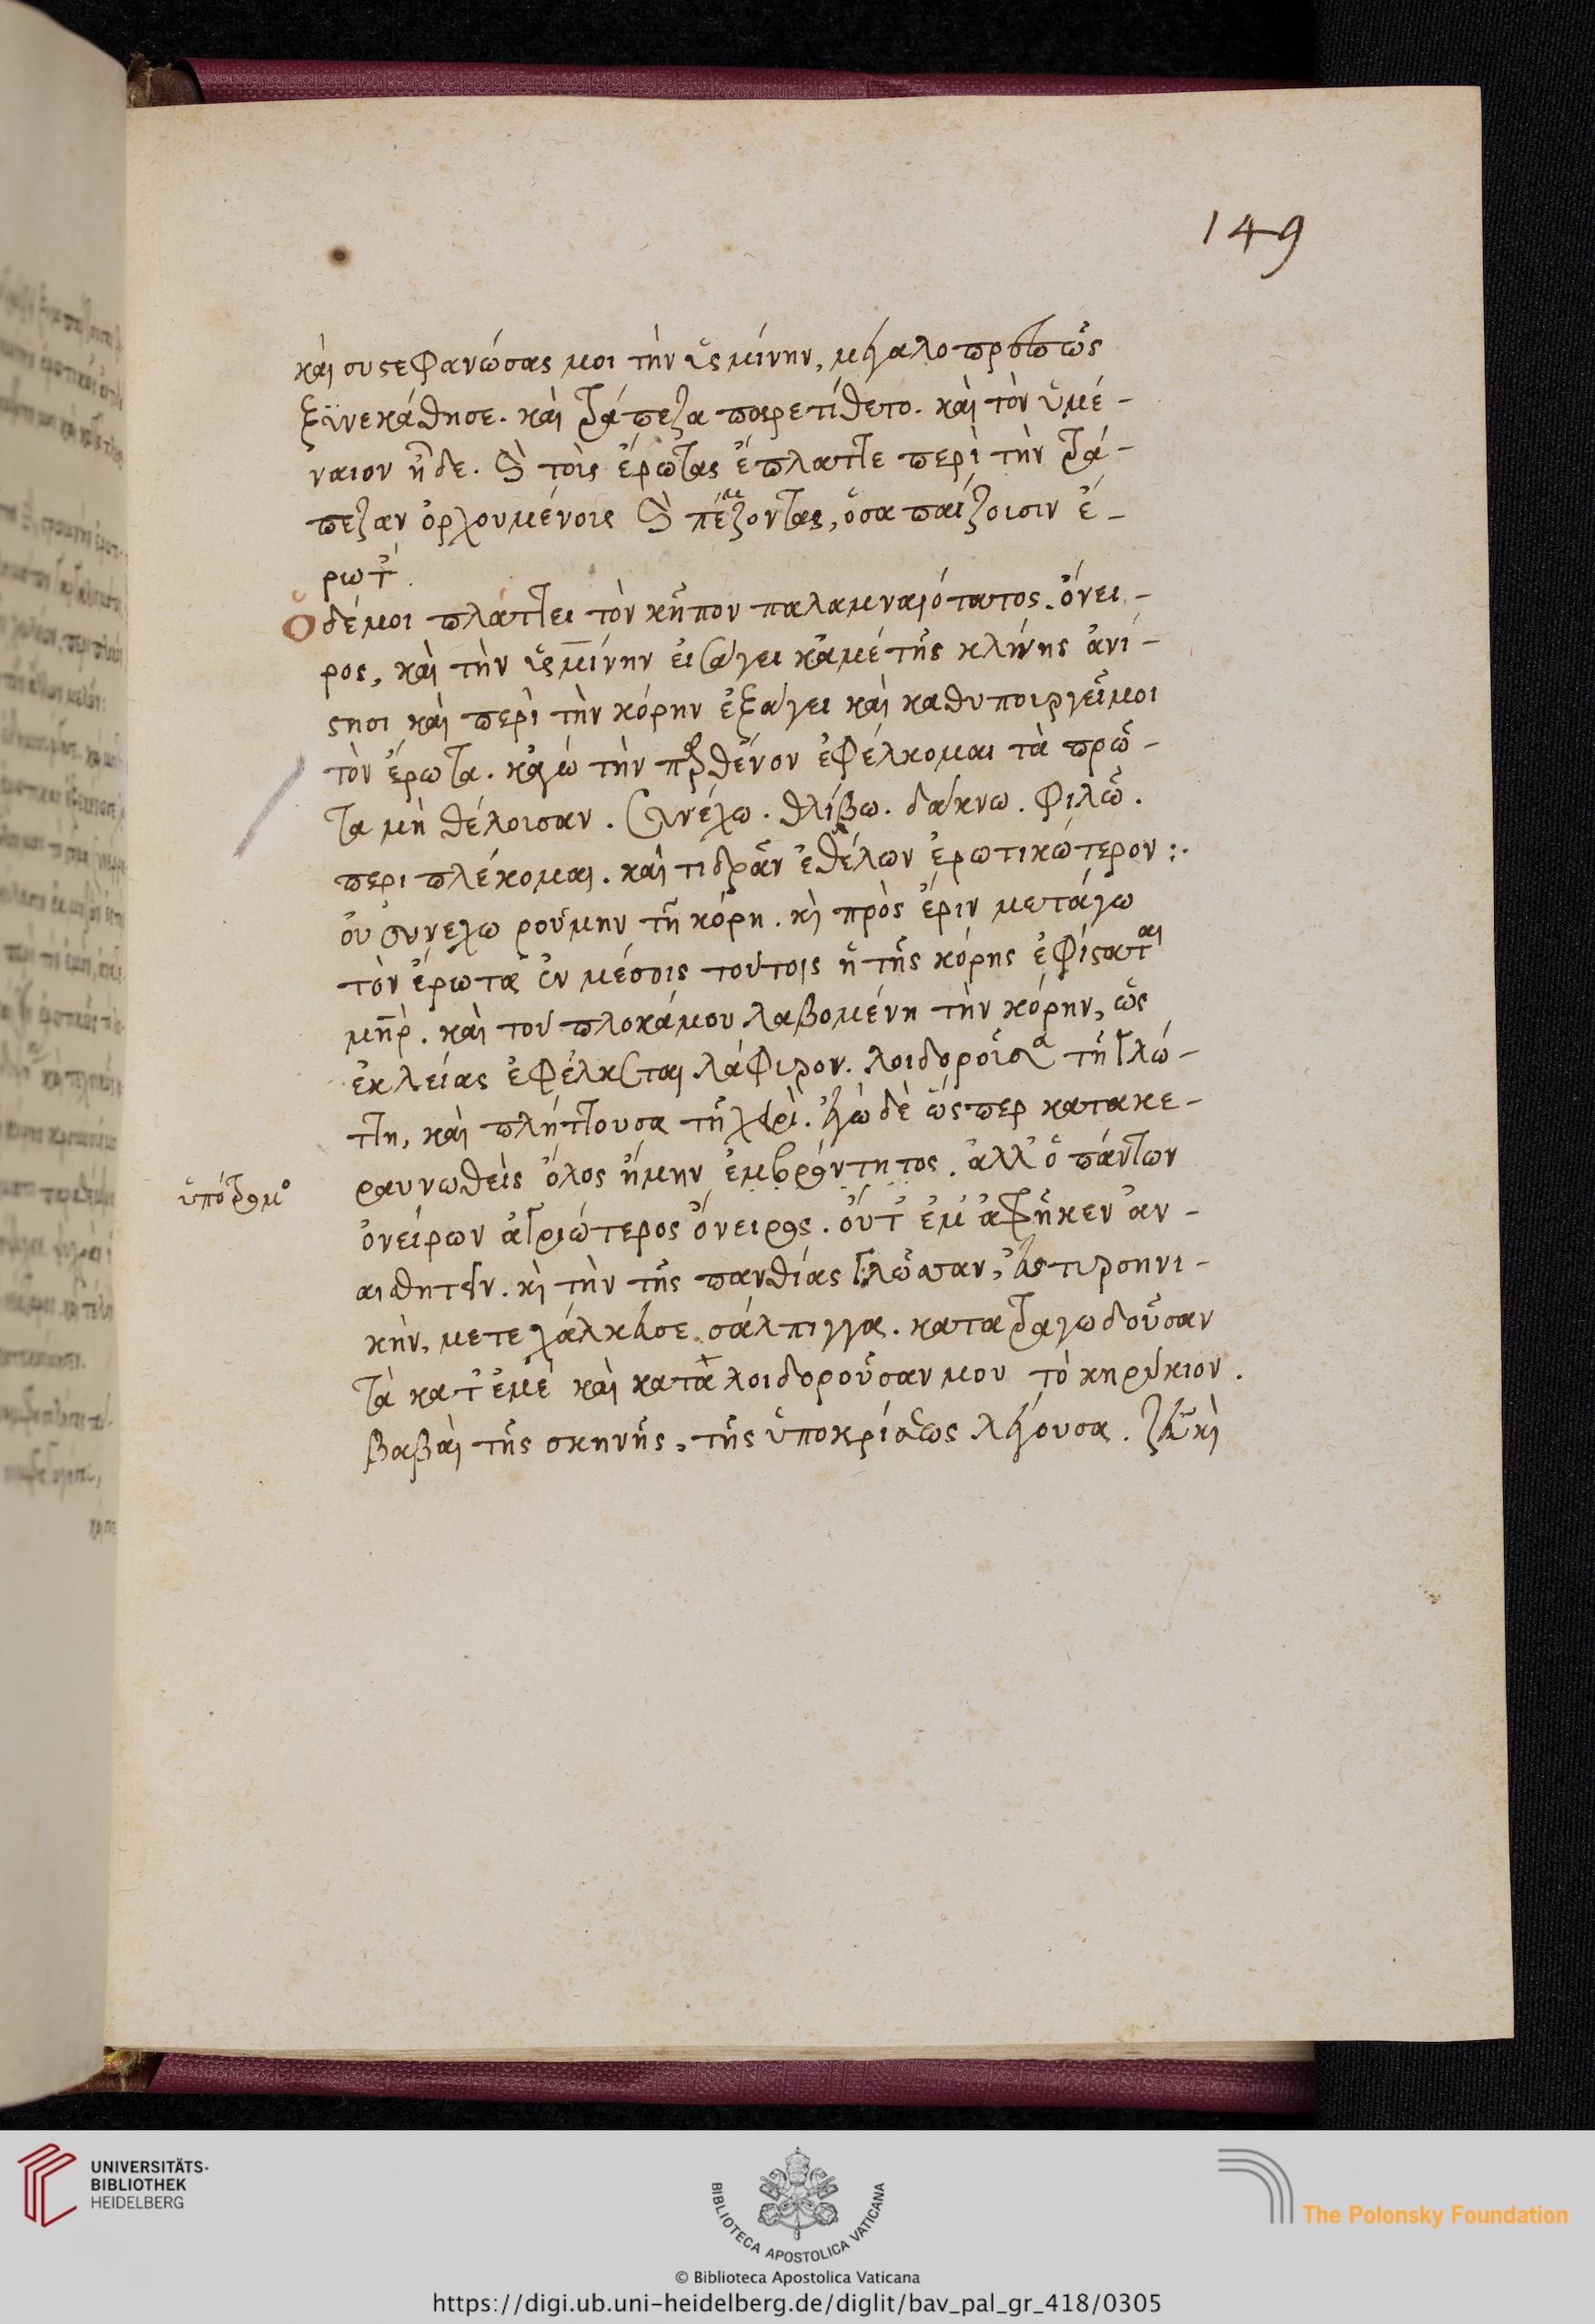 149
καὶ συστεφανώσας μοι τὴν ὑσμίνην, μεγαλοπρεπῶς
ξυνεκάθησε. καὶ τράπεζα παρετίθετο. καὶ τὸν ὑμέ-
ναιον ᾖδε. καὶ τοὺς ἔρωτας ἔπλαττε περὶ τὴν τρά-
πεζαν ὀρχουμένους καὶ παίζοντας, ὅσα παίζουσιν ἔ-
ρωτες.
Ὁ δέ μοι πλάττει τὸν κῆπον παλαμναιότατος ὄνει-
ρος, καὶ τὴν ὑσμίνην εἰσάγει κἀμὲ τῆς κλίνης ἀνί-
στησι καὶ περὶ τὴν κόρην ἐξάγει καὶ καθυπουργεῖ μοι
τὸν ἔρωτα. κἀγὼ τὴν παρθένον ἐφέλκομαι τὰ πρῶ-
τα μὴ θέλουσαν. συνέχω. θλίβω. δάκνω. φιλῶ.
περιπλέκομαι. καί τι δρᾶν ἐθέλων ἐρωτικώτερον :.
οὐ συνεχωρούμην τῇ κόρῃ. καὶ πρὸς ἔριν μετάγω
τὸν ἔρωτα ἐν μέσοις τούτοις ἡ τῆς κόρης ἐφίσταται
μηρ. καὶ τοῦ πλοκάμου λαβομένη τὴν κόρην, ὡς
ἐκ λείας ἐφέλκεται λάφυρον. λοιδοροῦσα τῇ γλώ-
ττῃ, καὶ πλήττουσα τῇ χειρί. ἐγὼ δὲ ὥσπερ κατακε-
ραυνωθεὶς ὅλος ἤμην ἐμβρόντητος. ἀλλ' ὁ πάντων
ὑπότρομος
ὀνείρων ἀγριώτερος ὄνειρος. οὔτ' ἐμ' ἀφῆκεν ἀν-
αισθητεῖν. καὶ τὴν τῆς πανθίας γλῶτταν, εἰς τυρσηνι-
κὴν, μετεχάλκευσε σάλπιγγα. κατατραγωδοῦσαν
τὰ κατ' ἐμὲ καὶ κατὰ λοιδοροῦσαν μου τὸ κηρύκιον.
βαβαὶ τῆς σκηνῆς, τῆς ὑποκρίσεως λέγουσα. ζεῦ καὶ
UNIVERSITÄTS-
BIBLIOTHEK
HEIDELBERG
BIBLIOTECA APOSTOLICA VATICANA
The Polonsky Foundation
© Biblioteca Apostolica Vaticana
https://digi.ub.uni-heidelberg.de/diglit/bav_pal_gr_418/0305